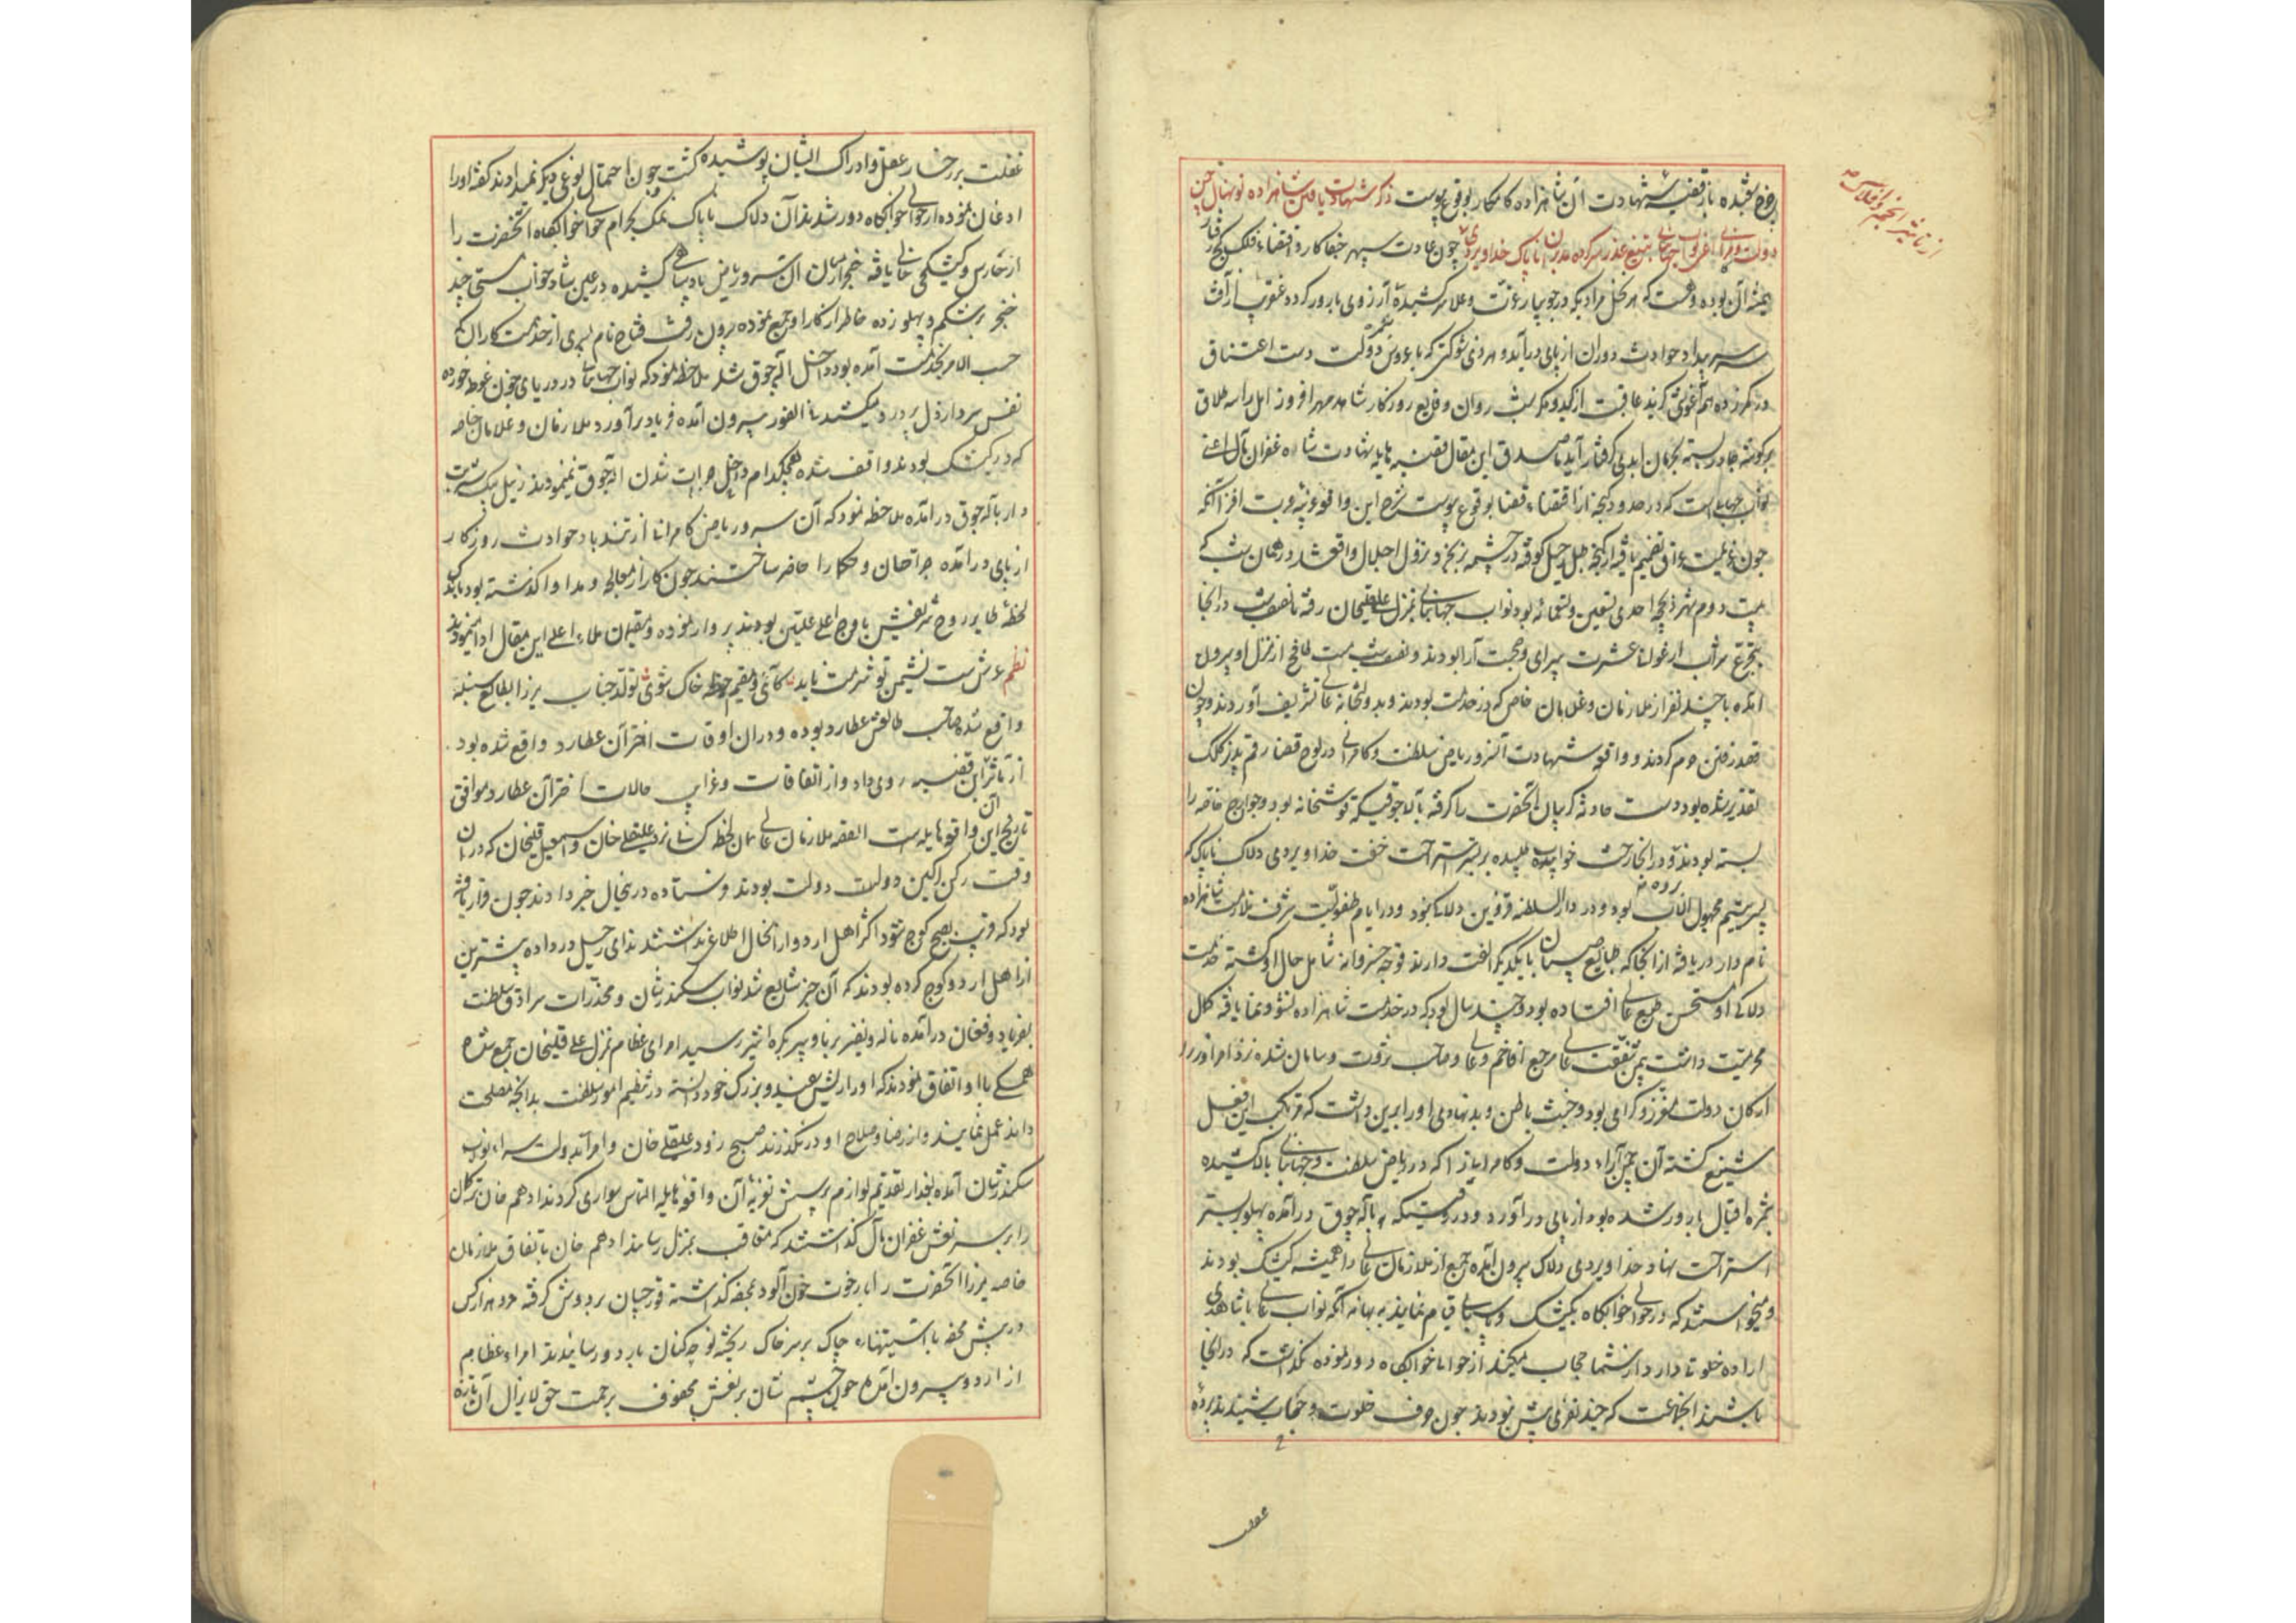 بوضوح نقبده باز قضیه شهادت آن شاهزاده کامکار بوقوع پیوست ذکر شهادت یافتن شاهزاده نونهال چمن
دولت و کامرانی نواب جهانبانی بتیغ غدر سرکرده مدبران ناپاک خداویردی چون عادت سپهر جفاکار و اقتضاء فلک کج رفتار
همیشه آن بوده و هست که هر نخل مراد که در جویبار عزت و علا سرکشیده آرزوی بارور کردد عنقریب از آفت
سر بیداد حوادث دوران از پای درآید و هر ذی شوکتی که با عروس دولت دست اعتناق
در کمر زده هم آغوشی کزیند عاقبت از کید و مکر شب روان وقایع روزکار شاهد مهرافروز امل را سه طلاق
بر کوشه چادر بسته بحرمان ابدی کرفتار آید مصداق این مقال قضیه هایله شهادت شاهزاده غفران مآل اعنی
نواب جهانبانی است که در حدود کنجه از اقتضاء قضا بوقوع پیوست شرح این واقعه غریبه غربت افزا آنکه
چون عزیمت عراق تصمیم یافته از کنجه طبل رحیل کوفته در چشمه بزبز و نزول اجلال واقع شد در همان شب که
بیست و دوم شهر ذیحجه احدی تسعین و تسعمائه بود نواب جهانبانی بمنزل علیقلیخان رفته تا نصف شب در انجا
بتجرع شراب ارغوانی عشرت پیرای و صحبت آرا بودند و نصف شب مست طافح از منزل او بیرون
امده با چند نفر از ملازمان و غلامان خاص که در خدمت بودند و بدولتخانه عالی تشریف آوردند و چون
قصد رفتن حرم کردند و واقعه شهادت آن سرو ریاض سلطنت و کامرانی در لوح قضا رقم پذیر کلک
تقدیر شده بود دست حادثه کریبان آنحضرت را کرفته بآلاجوقیکه توشخانه بود و جوارح خاصه را
بسته بودند و در انجا رخت خواب طلبیده بر بستر استراحت خفت خداویردی دلاک ناپاک که
پسر یتیم مجهول الاب بود و در دارالسلطنه قزوین دلاکی نمود و در ایام طفولیت شرف ملازمت شاهزاده
نامدار دریافته از انجا که طبایع صبیان با یکدیکر الفت دارند توجه خسروانه شامل حال او کشته خدمت
دلاکی او مستحسن طبع عالی افتاده بود و چند سال بود که در خدمت شاهزاده نشو و نما یافته کمال
محرمیت داشت بیمن شفقت عالی مرجع افاخم و عالی و صاحب ثروت و سامان شده نزد امرا و
ارکان دولت معزز و کرامی بود و خبث باطن و بدنهادی او را برین داشت که مرتکب این فعل
شنیع کشته آن چمن آراء دولت و کامرانی را که در ریاض سلطنت و جهانبانی بالا کشیده
ثمره اقبال بارور شده بود از پای درآورد و در وقتیکه بآلاجوق درآمده پهلو بر بستر
استراحت نهاد خداویردی دلاک بیرون آمده جمع از ملازمان عالی را همیشه کشیک بودند
و میخواستند که در حوالی خوابکاه بکشیک و پاسبانی قیام نمایند به بهانه آنکه نواب عالی با شاهدی
اراده خلوت دارد از شما حجاب میکند از حوالی خوابکاه دور نموده نکذاشت که در انجا
باشند انجماعت که چند نفری بیش نبودند چون حرف خلوت و حجاب شنیدند پرده
غفلت
از تاثیر انجم و افلاک
غفلت بر رخسار عقل و ادراک ایشان پوشیده کشت چون احتمال نوعی دیکر نمیدادند کفته او را
اذعان نموده از حوالی خوابکاه دور شدند آن دلاک ناپاک نمک بحرام حوالی خوابکاه آنحضرت را
از حارس و کشیکچی خالی یافته خنجر از میان آن سرو ریاض پادشاهی کشیده در عین نشاه خواب مستی چند
خنجر بر شکم و پهلو زده خاطر از کار او جمع نموده بیرون رفت فتاح نام پسری از خدمتکاران که
حسب الامر بخدمت آمده بود داخل آلاچوق شد ملاحظه نمود که نواب جهانبانی در دریای خون غوطه خورده
نفس سرد از دل پر درد میکشد فی الفور بیرون آمده فریاد برآورد ملازمان و غلامان خاصه
که در کشیک بودند واقف شده هیچکدام دخل جرات شدن آلاچوق نمینمودند زینل بیک شربت
دار بآلاچوق درآمده ملاحظه نمود که آن سرو ریاض کامرانی از تندباد حوادث روزکار
از پای درآمده جراحان و حکما را حاضر ساختند چون کار از معالجه و مداوا کذشته بود باندک
لحظه طایر روح شریفش باوج اعلی علیین پرواز نموده و مقیمان ملاء اعلی این مقال ادا نمودند
نظم عرش ست نشیمن تو شرمت باید کائی و مقیم خطه خاک شوی تولد جناب میرزا بطالع سنبله
واقع شده صاحب طالعش عطارد بوده و در ان اوقات احتراق عطارد واقع شده بود
از تاثیر این قضیه روی داد و از اتفاقات و غرایب حالات احتراق عطارد موافق
تاریخ این واقعه هایله است القصه ملازمان عالی همان لحظه کسان نزد علیقلی خان و اسمعیل قلیخان که در ان
وقت رکن رکین دولت بودند فرستاده درینحال خبر دادند چون قرار یافته
بود که قریب بصبح کوچ شود اکثر اهل اردو از انحال اطلاع نداشتند ندای رحیل در داده بیشترین
از اهل اردو کوچ کرده بودند که آن خبر شایع شد نواب سکندرشان و مخدرات سرادق سلطنت
بفریاد و فغان درآمده ناله و نفیر برنا و پیر بکره اثیر رسید امرای عظام بمنزل علی قلیخان جمع شده
همکی با او اتفاق نمودند که او را ریش سفید و بزرک خود دانسته در تنظیم امور سلطنت بدانچه مصلحت
داند عمل نمایند و از رضا و صلاح او در نکذرند صبح زود علیقلی خان و امرا بدولت سرای نواب
سکندرشان آمده بعد از تقدیم لوازم پرسش تعزیه آن واقعه هایله التماس سواری کردند ادهم خان ترکمان
را بر سر نعش غفران مآل کذاشتند که متعاقب بمنزل رساند ادهم خان باتفاق ملازمان
خاصه میرزا آنحضرت را با رخوت خون آلود بمحفه کذاشته قورچیان بر دوش کرفته مرد هزار کس
در پیش محفه با استینهاء چاک بر سر خاک ریخته نوحه کنان باردو رسانیدند امراء عظام
از اردو بیرون آمده چون چشم شان بر نعش محفوف برحمت حق لایزال آن تازه